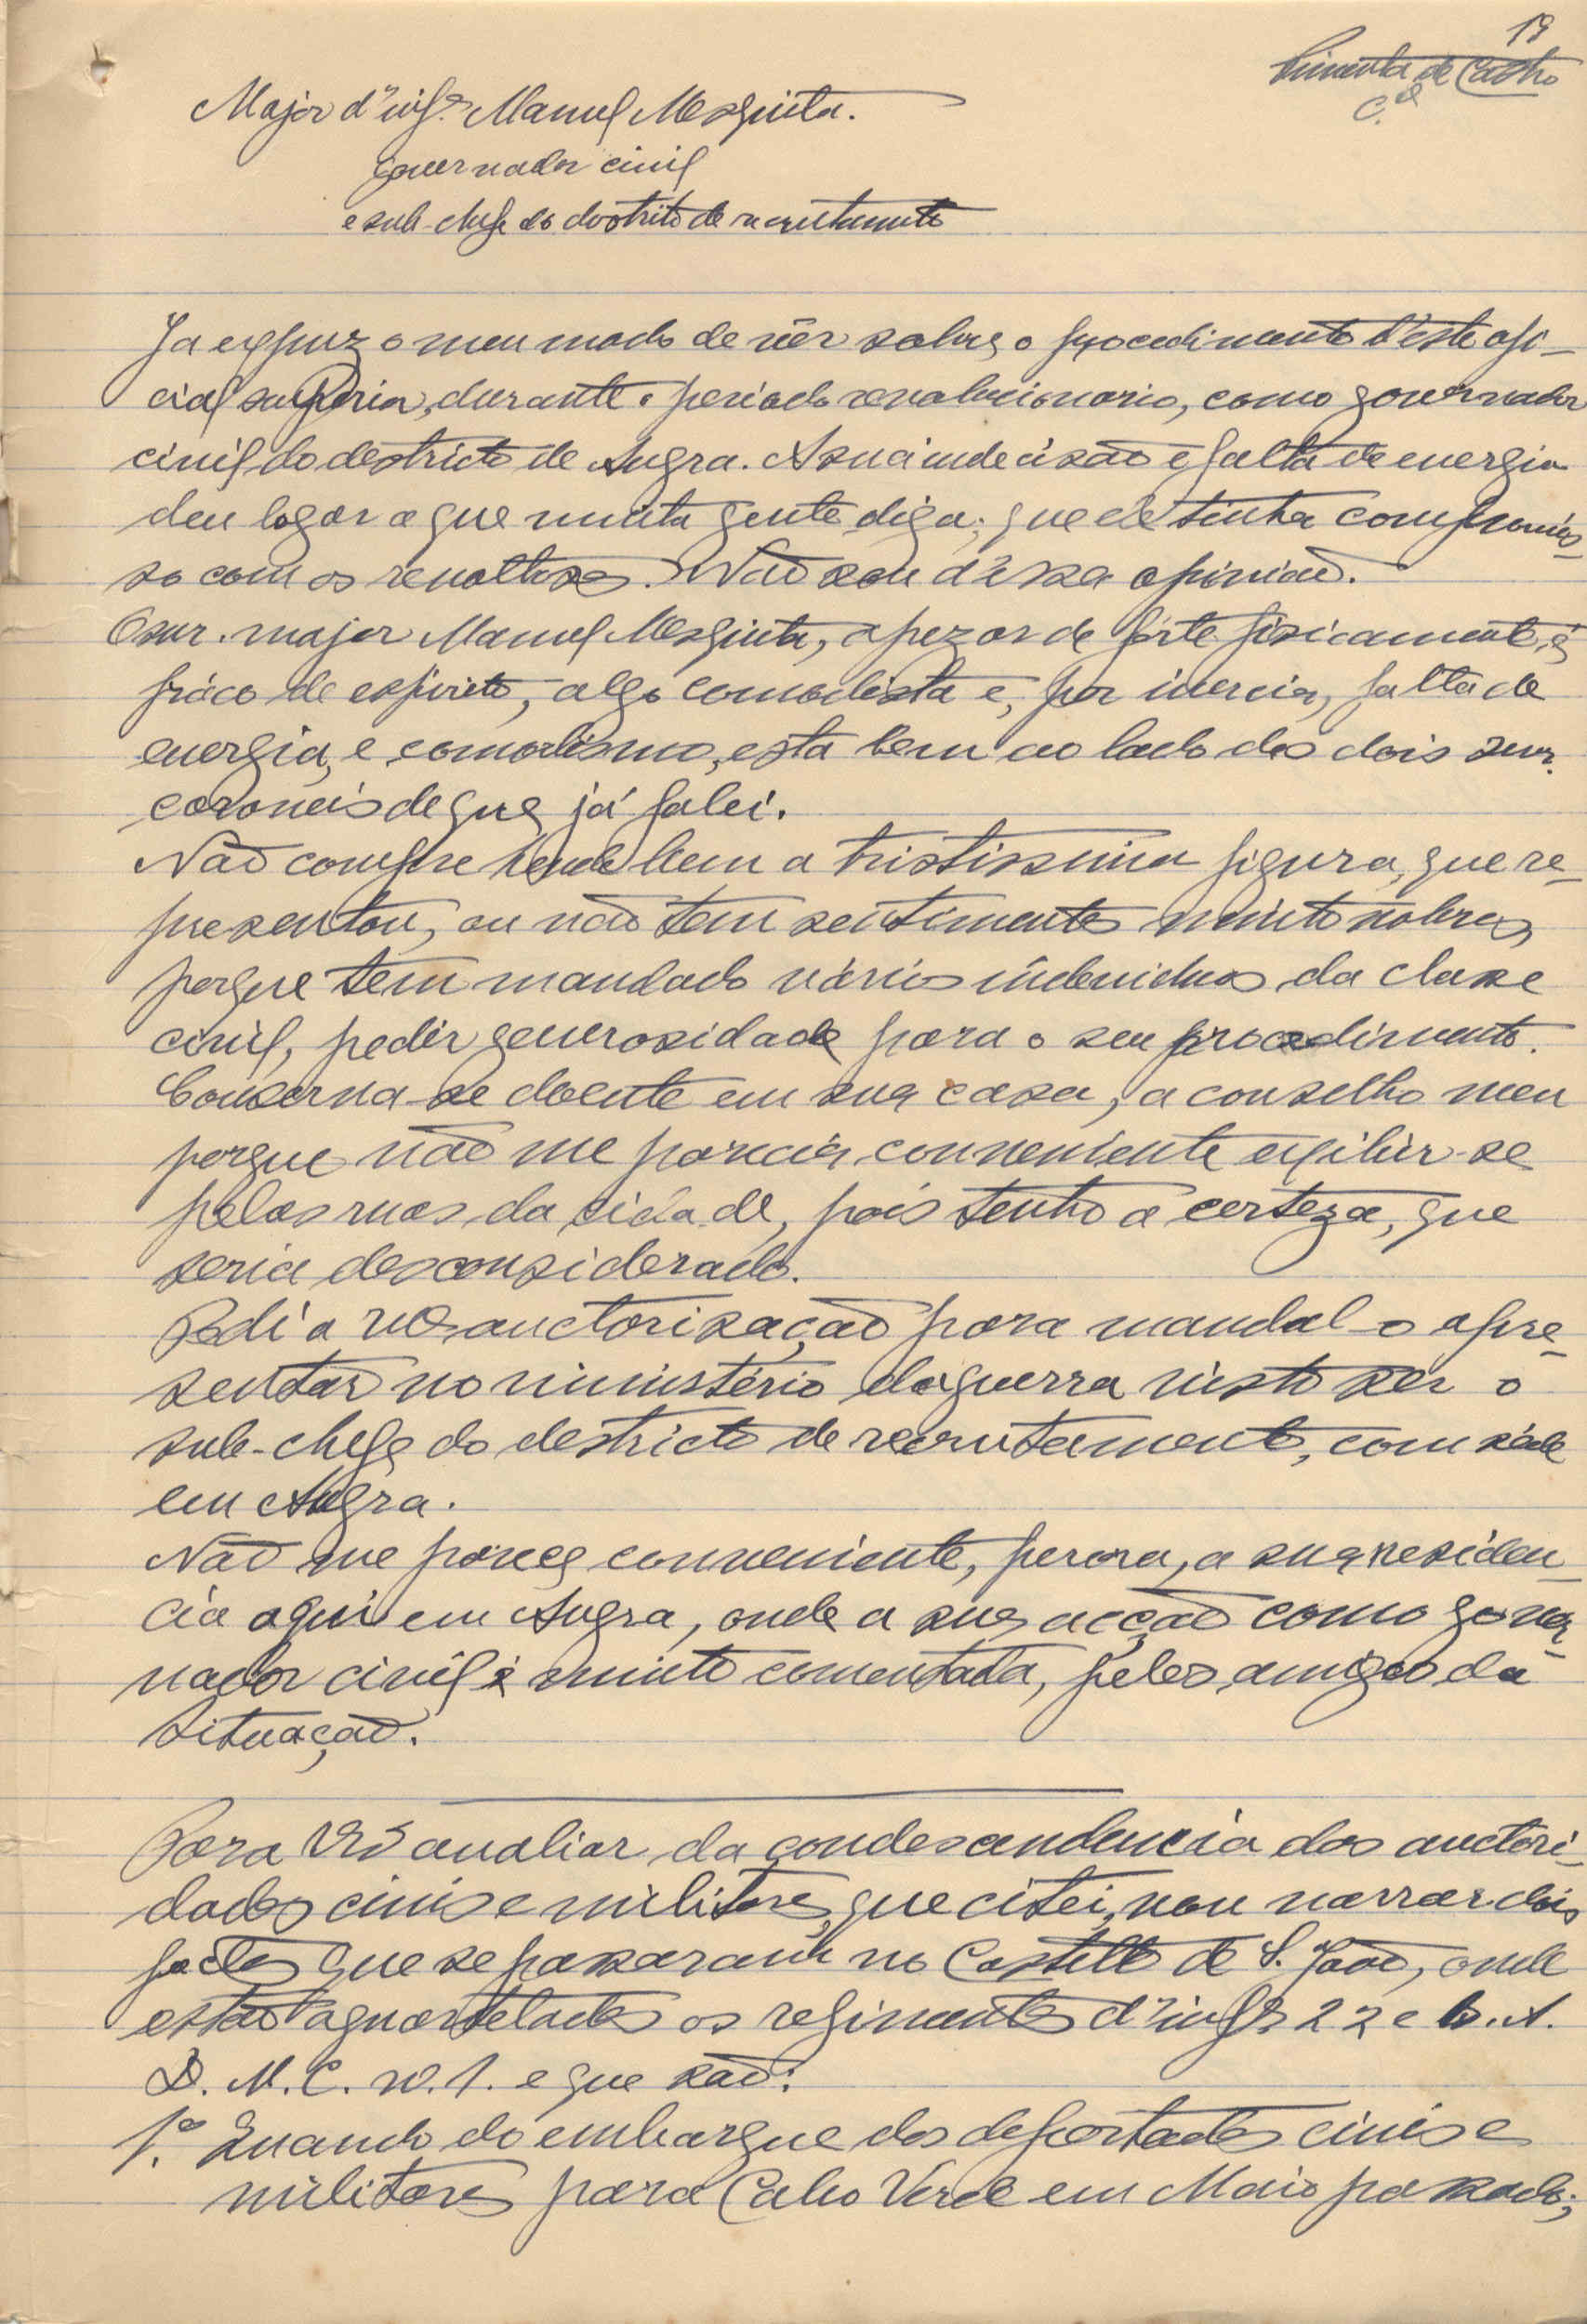 19
Pimenta de Castro
C.el
Major d'inf.ª Manuel Mesquita.
governador civil
e sub-chefe do distrito de recrutamento
Ja expuz o meu modo de vêr sobre o procedimento d'este ofi-
cial superior, durante o periodo revolucionario, como governador
civil do destricto de Angra. A sua indecisão e falta de energia
deu logar a que muita gente diga; que ele tinha compromis-
so com os revoltosos. Não sou d'essa opinião.
O snr. major Manuel Mesquita, apezar de forte fisicamente, é
fráco de espirito, algo comodista e, por inercia, falta de
energia, e comodismo, esta bem ao lado dos dois snr.
coroneis de que já falei.
Não comprehende bem a tristissima figura, que re-
presentou, ou não tem sentimentos muito nobres,
porque tem mandado vários individuos da classe
civil, pedir generosidade para o seu procedimento.
Conserva-se doente em sua casa, a conselho meu
porque não me parecia conveniente exibir-se
pelas ruas da cidade, pois tenho a certeza, que
seria desconsiderado.
Pedi a V. Ex.ª auctorisação para mandal-o apre-
sentar no ministério da guerra visto ser o
sub-chefe do destricto de recrutamento, com séde
em Angra.
Não me parece conveniente, perora, a sua residen-
cia aqui em Angra, onde a sua acção como gover-
nador civil é muito comentada, pelos amigos da
situação.
Para V. Ex.ª avaliar da condescendencia das auctori-
dades civis e militares, que citei, vou narrar dois
factos que se passaram no Castello de S. João, onde
estão aquartelados os regimentos d'inf.ª 22 e B. A.
D. M. C. n. 1. e que são:
1.º Quando do embarque dos deportados civis e
militares para Cabo Verde em Maio passado;